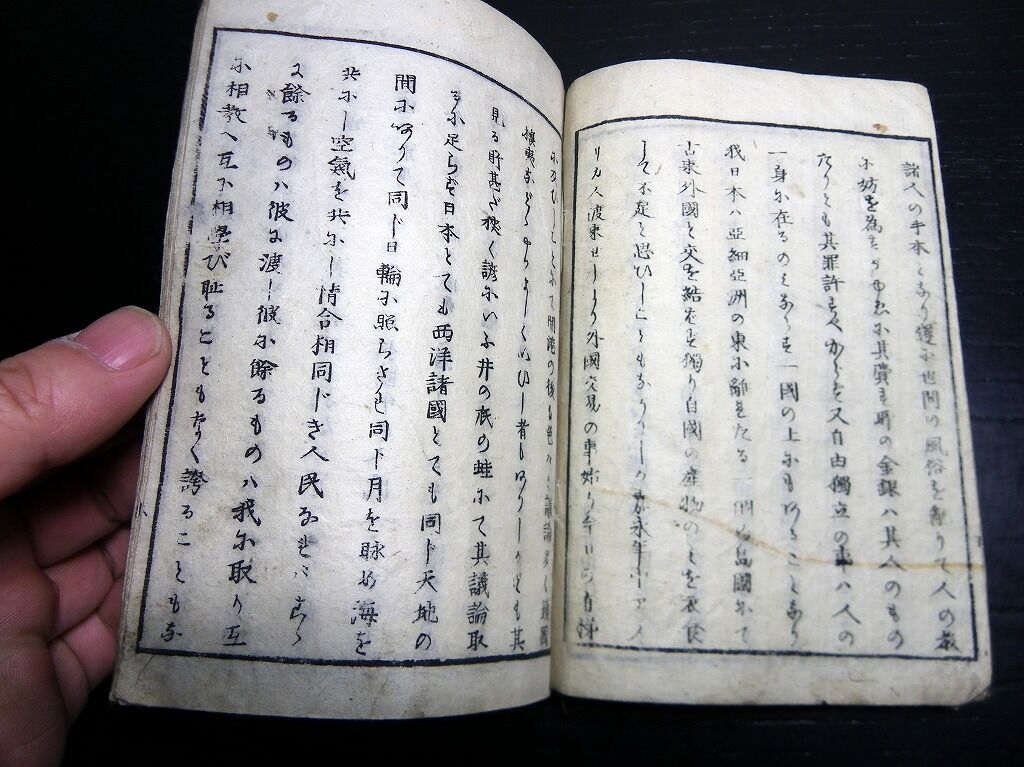 諸人の手本となり遂に世間の風俗を亂りて人の教
に妨を為すがゆゑに其費す所の金銀ハ其人のもの
たりとも其罪許すべからず又自由獨立の事ハ人の
一身に在るのみならず一國の上にもあることなり
我日本ハ亞細亞洲の東に離れたる一個の島國にて
古来外國と交を結ばず獨り自國の産物のみを衣食
して不足と思ひしこともなかりしが嘉永年中アメ
リカ人渡来せしより外國交易の事始り今日の有様
に及びしことにて開港の後も色々と議論多く鎖國
攘夷などとやかましくいひし者もありしかども其
見る所甚だ狭く諺にいふ井の底の蛙にて其議論取
るに足らず日本とても西洋諸國とても同じ天地の
間にありて同じ日輪に照らされ同じ月を眺め海を
共にし空氣を共にし情合相同じき人民なればこゝ
に餘るものハ彼に渡し彼に餘るものハ我に取り互
に相教へ互に相學び恥ることもなく誇ることもな